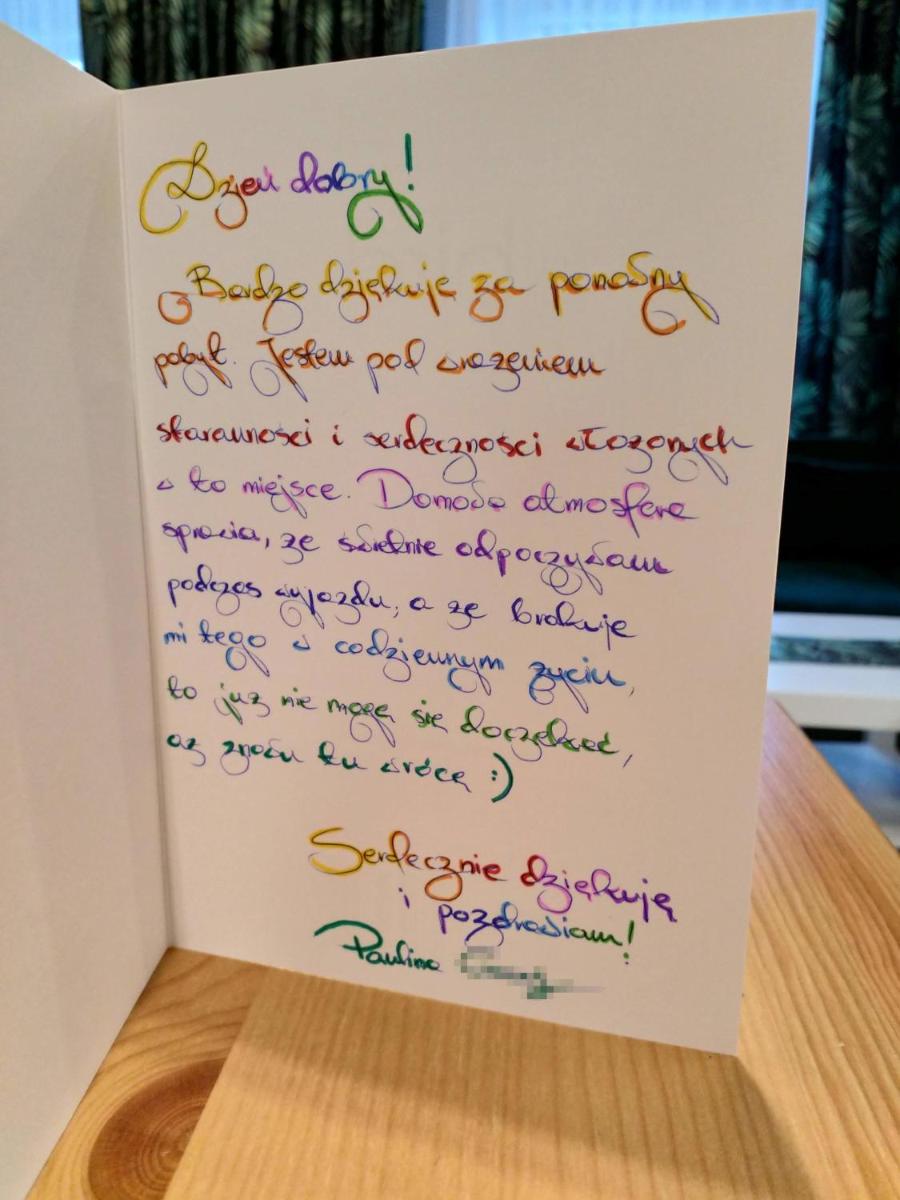 Dzień dobry!
Bardzo dziękuję za ponowny
pobyt. Jestem pod wrażeniem
staranności i serdeczności włożonych
w to miejsce. Domowa atmosfera
sprawia, że świetnie odpoczywam
podczas wyjazdu, a że brakuje
mi tego w codziennym życiu,
to już nie mogę się doczekać,
aż znowu tu wrócę :)
Serdecznie dziękuję
i pozdrawiam!
Paulina